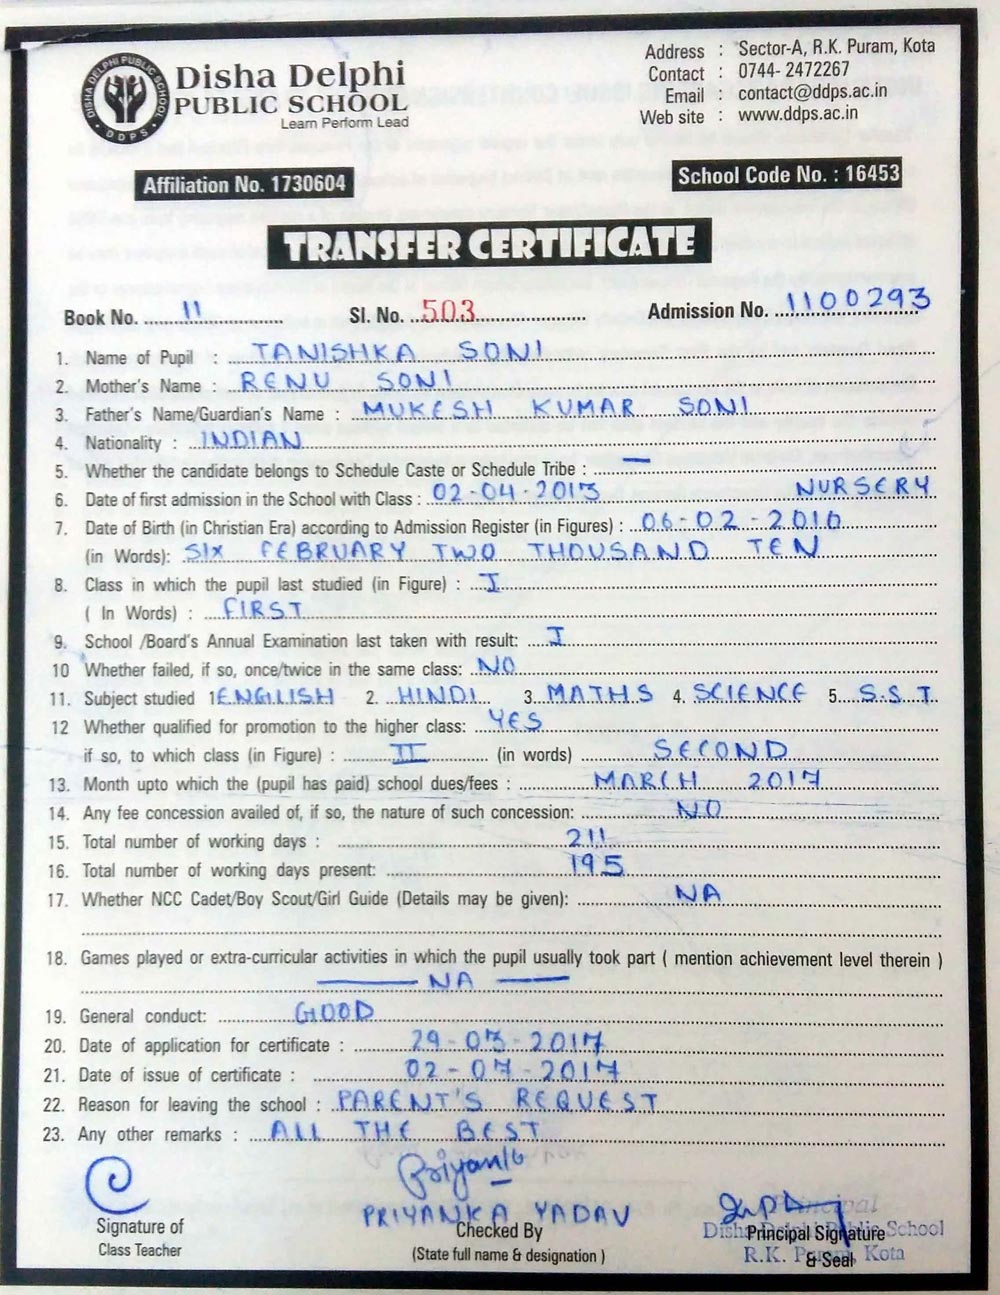 DISHA DELPHI PUBLIC SCHOOL
DDPS
Disha Delphi
PUBLIC SCHOOL
Learn Perform Lead
Address : Sector-A, R.K. Puram, Kota
Contact : 0744- 2472267
Email : contact@ddps.ac.in
Web site : www.ddps.ac.in
Affiliation No. 1730604
School Code No. : 16453
TRANSFER CERTIFICATE
Book No. 11 Sl. No. 503 Admission No. 1100293
1. Name of Pupil : TANISHKA SONI
2. Mother's Name : RENU SONI
3. Father's Name/Guardian's Name : MUKESH KUMAR SONI
4. Nationality : INDIAN
5. Whether the candidate belongs to Schedule Caste or Schedule Tribe : —
6. Date of first admission in the School with Class : 02-04-2013 NURSERY
7. Date of Birth (in Christian Era) according to Admission Register (in Figures) : 06-02-2010
(in Words): SIX FEBRUARY TWO THOUSAND TEN
8. Class in which the pupil last studied (in Figure) : I
( In Words) : FIRST
9. School /Board's Annual Examination last taken with result: I
10 Whether failed, if so, once/twice in the same class: NO
11. Subject studied 1 ENGLISH 2. HINDI 3. MATHS 4. SCIENCE 5. S.S.T
12 Whether qualified for promotion to the higher class: YES
if so, to which class (in Figure) : II (in words) SECOND
13. Month upto which the (pupil has paid) school dues/fees : MARCH 2017
14. Any fee concession availed of, if so, the nature of such concession: NO
15. Total number of working days : 211
16. Total number of working days present: 195
17. Whether NCC Cadet/Boy Scout/Girl Guide (Details may be given): NA
18. Games played or extra-curricular activities in which the pupil usually took part ( mention achievement level therein )
— NA —
19. General conduct: GOOD
20. Date of application for certificate : 29-03-2017
21. Date of issue of certificate : 02-07-2017
22. Reason for leaving the school : PARENT'S REQUEST
23. Any other remarks : ALL THE BEST
Priyanka
PRIYANKA YADAV
Principal
Disha Delphi Public School
R.K. Puram, Kota
Signature of
Class Teacher
Checked By
(State full name & designation )
Principal Signature
& Seal